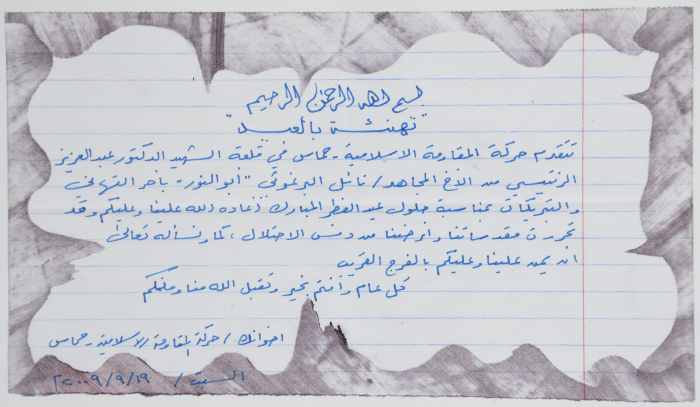 بسم الله الرحمن الرحيم
"تهنئة بالعيد"
تتقدم حركة المقاومة الاسلامية - حماس في قلعة الشهيد الدكتور عبد العزيز
الرنتيسي من الأخ المجاهد / نائل البرغوثي "أبو النور" بأحر التهاني
والتبريكات بمناسبة حلول عيد الفطر المبارك أعاده الله علينا وعليكم وقد
تحررت مقدساتنا وأرضنا من دنس الاحتلال ، كما ونسأله تعالى
ان يمن علينا وعليكم بالفرج القريب
كل عام وأنتم بخير وتقبل الله منا ومنكم
اخوانك / حركة المقاومة الاسلامية - حماس
السبت / ٢٠٠٩/٩/١٩